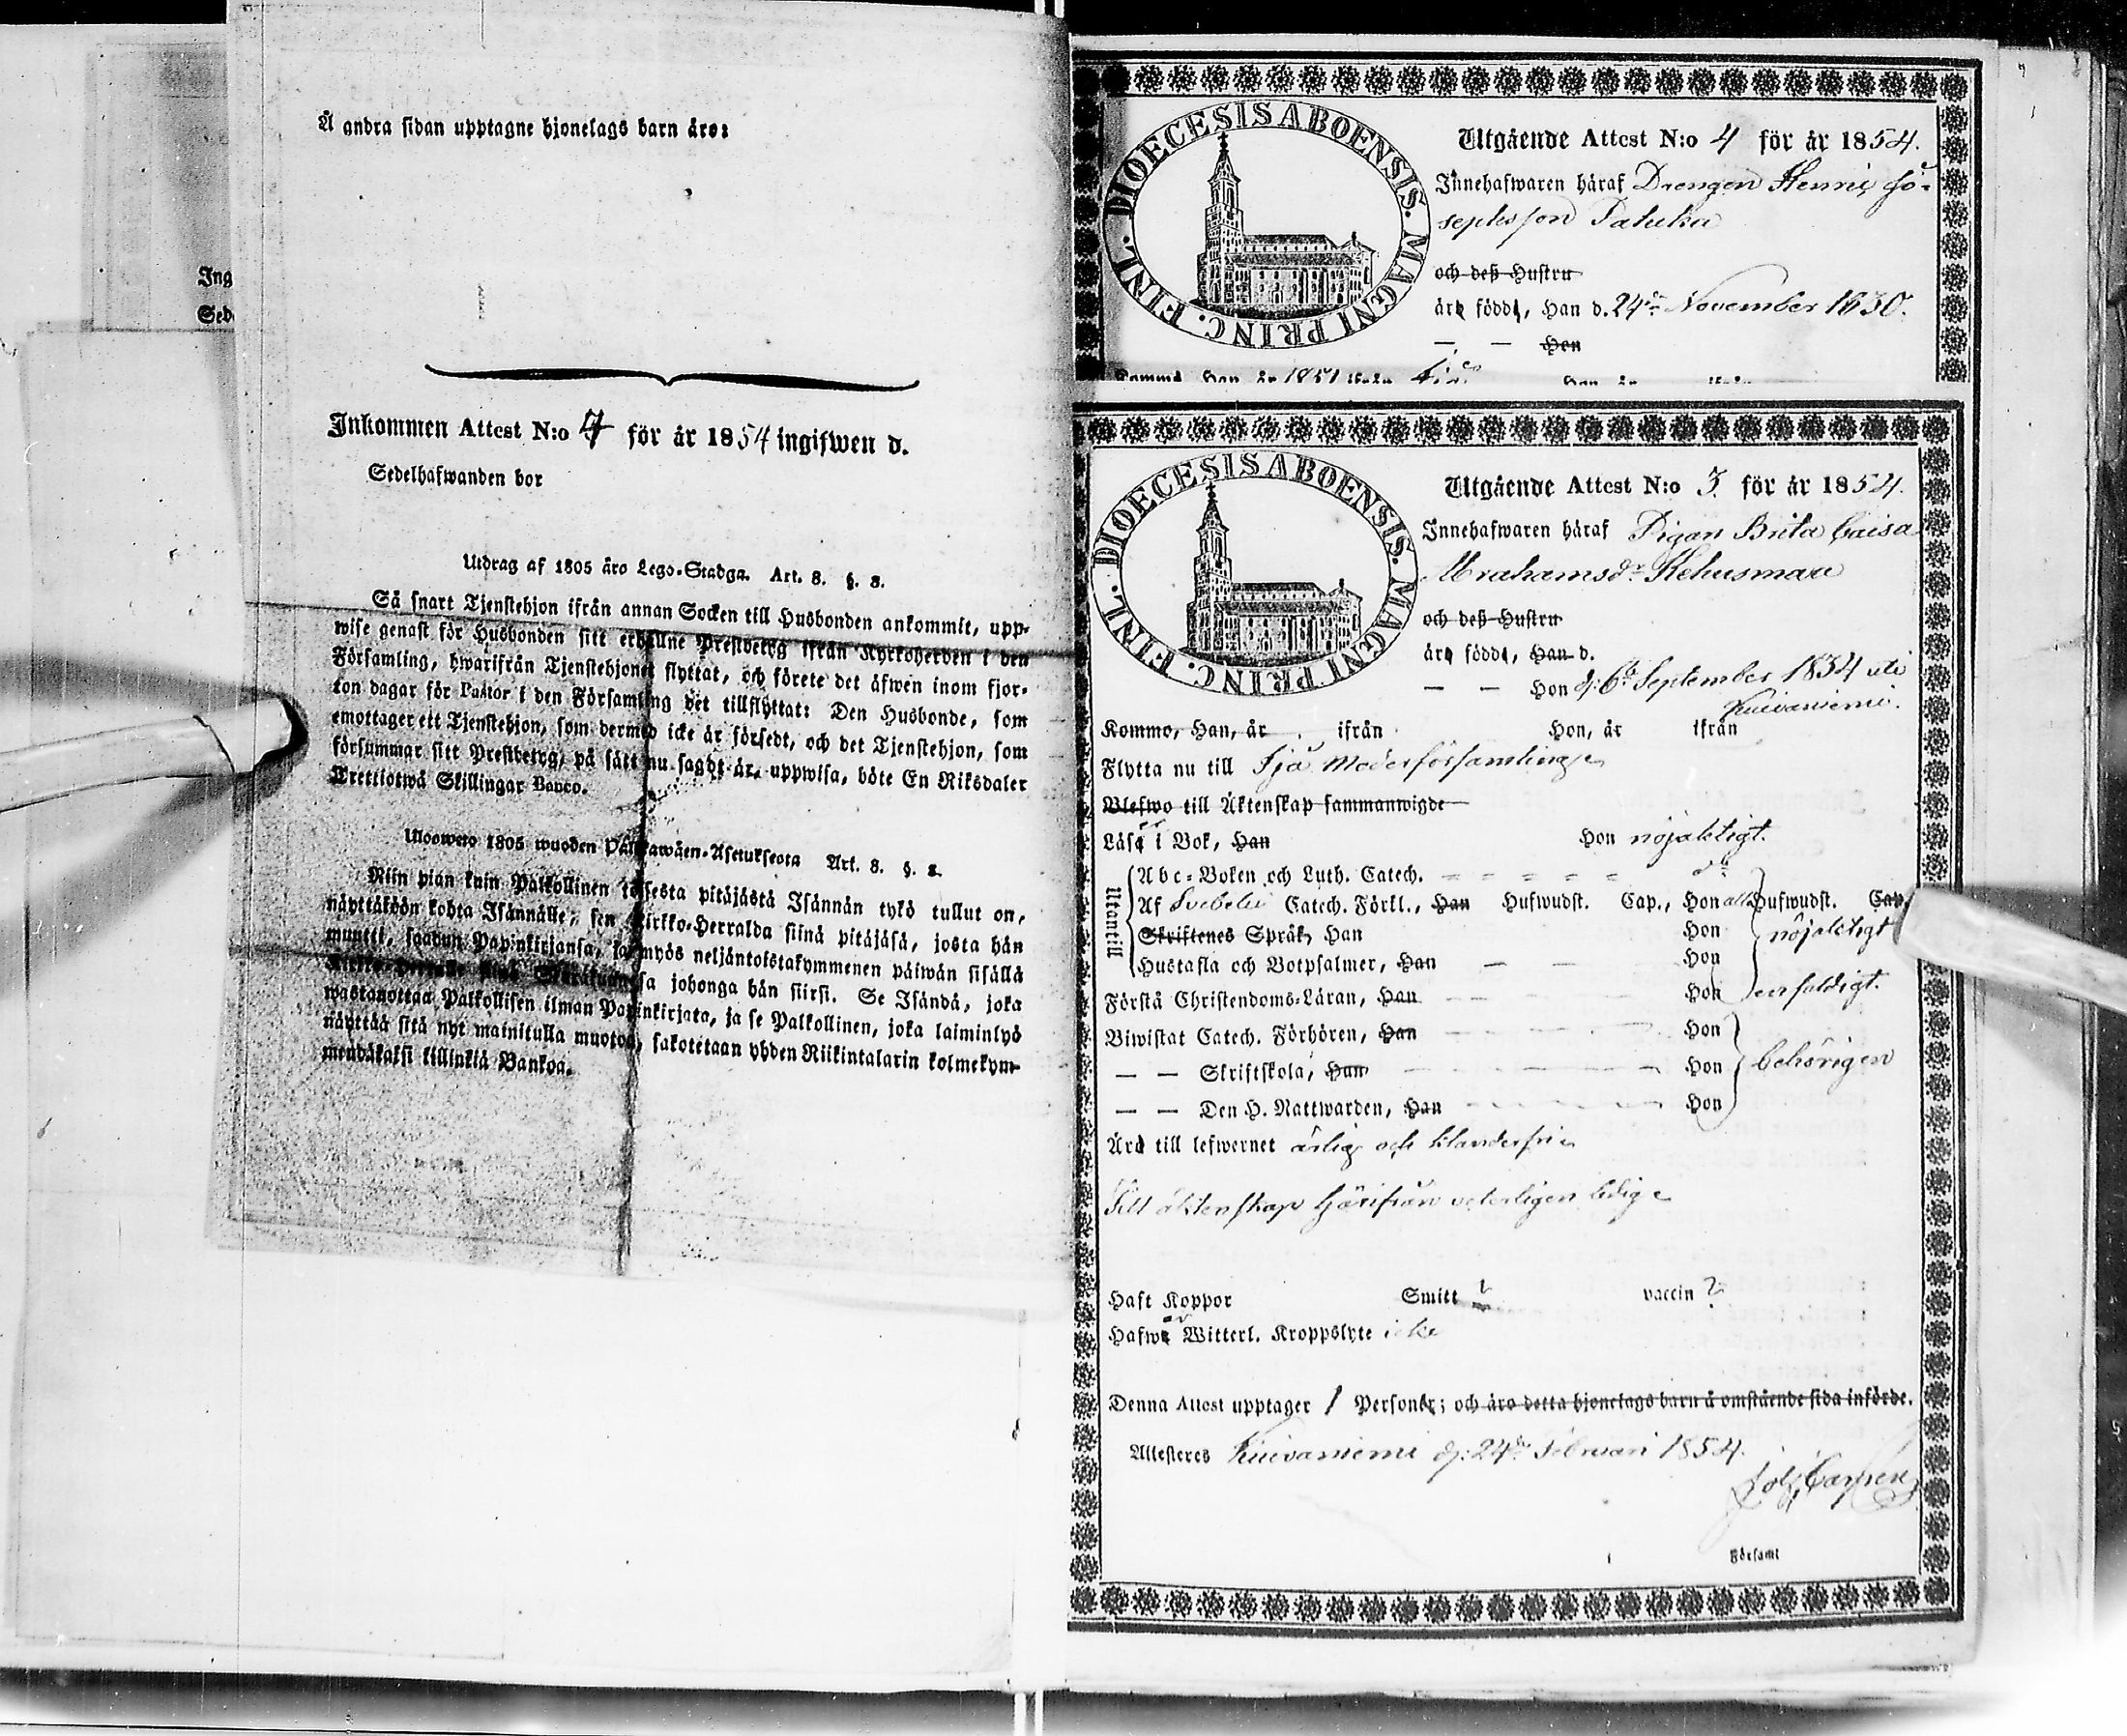 Ing
Sede
Å andra sidan upptagne hjonelags barn äro:
Inkommen Attest N:o 7 för år 1854 ingifwen d.
Sedelhafwanden bor
Utdrag af 1805 års Lego-Stadga. Art. 8. §. 8.
Så snart Tjenstehjon ifrån annan Socken till Husbonden ankommit, upp-
wise genast för Husbonden sitt erhållne Prestbetyg ifrån Kyrkoherden i den
Församling, hwarifrån Tjenstehjonet flyttat, och förete det äfwen inom fjor-
ton dagar för Pastor i den Församling det tillflyttat: Den Husbonde, som
emottager ett Tjenstehjon, som dermed icke är försedt, och det Tjenstehjon, som
försummar sitt Prestbetyg, på sätt nu sagdt är, uppwisa, böte En Riksdaler
Trettiotwå Skillingar Banco.
Ulosweto 1805 wuoden Palkawäen-Asetuksesta Art. 8. §. 8.
Niin pian kuin Palkollinen toisesta pitäjästä Isännän tykö tullut on,
näyttäköön kohta Isännälle, sen Kirkko-Herralda siinä pitäjäsä, josta hän
muutti, saadun Papinkirjansa, ja myös neljäntoistakymmenen päiwän sisällä
Kirkko-Herralle siinä Seurakunnasa johonga hän siirsi. Se Isändä, joka
wastanottaa Palkollisen ilman Papinkirjata, ja se Palkollinen, joka laiminlyö
näyttää sitä nyt mainitulla muotoa, sakotetaan yhden Riikintalarin kolmekym-
mendäkaksi killinkiä Bankoa.
DIOECESIS ABOENSIS. MAGNI PRINC. FINL.
Utgående Attest N:o 4 för år 1854.
Innehafwaren häraf Drengen Henric Jo-
sephsson Paluka
och deß Hustru
äro födde, Han d. 24de November 1830.
— — Hon
Kommo, Han, år 1851 ifrån Hon, år ifrån
DIOECESIS ABOENSIS. MAGNI PRINC. FINL.
Utgående Attest N:o 3 för år 1854.
Innehafwaren häraf Pigan Brita Caisa
Abrahamsdr Kehusmaa
och deß Hustru
äro födde, Han d.
— — Hon d: 6te September 1834 uti
Kuivaniemi.
Kommo, Han, år ifrån Hon, år ifrån
Flytta nu till Ijo Moderförsamling
Blefwo till Äktenskap sammanwigde
Läsa i Bok, Han Hon nöjaktigt.
Utantill
Abc-Boken och Luth. Catech. do
Af Svebelii Catech. Förkl., Han Hufwudst. Cap., Hon alla Hufwudst. Cap.
Skriftenes Språk, Han Hon nöjaktigt
Hustafla och Botpsalmer, Han — — Hon
Förstå Christendoms-Läran, Han Hon enfaldigt.
Biwistat Catech. Förhören, Han Hon
— — Skriftskola, Han Hon behörigen
— — Den H. Nattwarden, Han Hon
Äro till lefwernet ärlig och klanderfri
Till äktenskap härifrån veterligen ledig
Haft Koppor Smitt ? vaccin ?
Hafwa Witterl. Kroppslyte icke
Denna Attest upptager 1 Personer; och äro detta hjonelags barn å omstående sida införde.
Attesteras Kuivaniemi d: 24de Februari 1854.
Församl